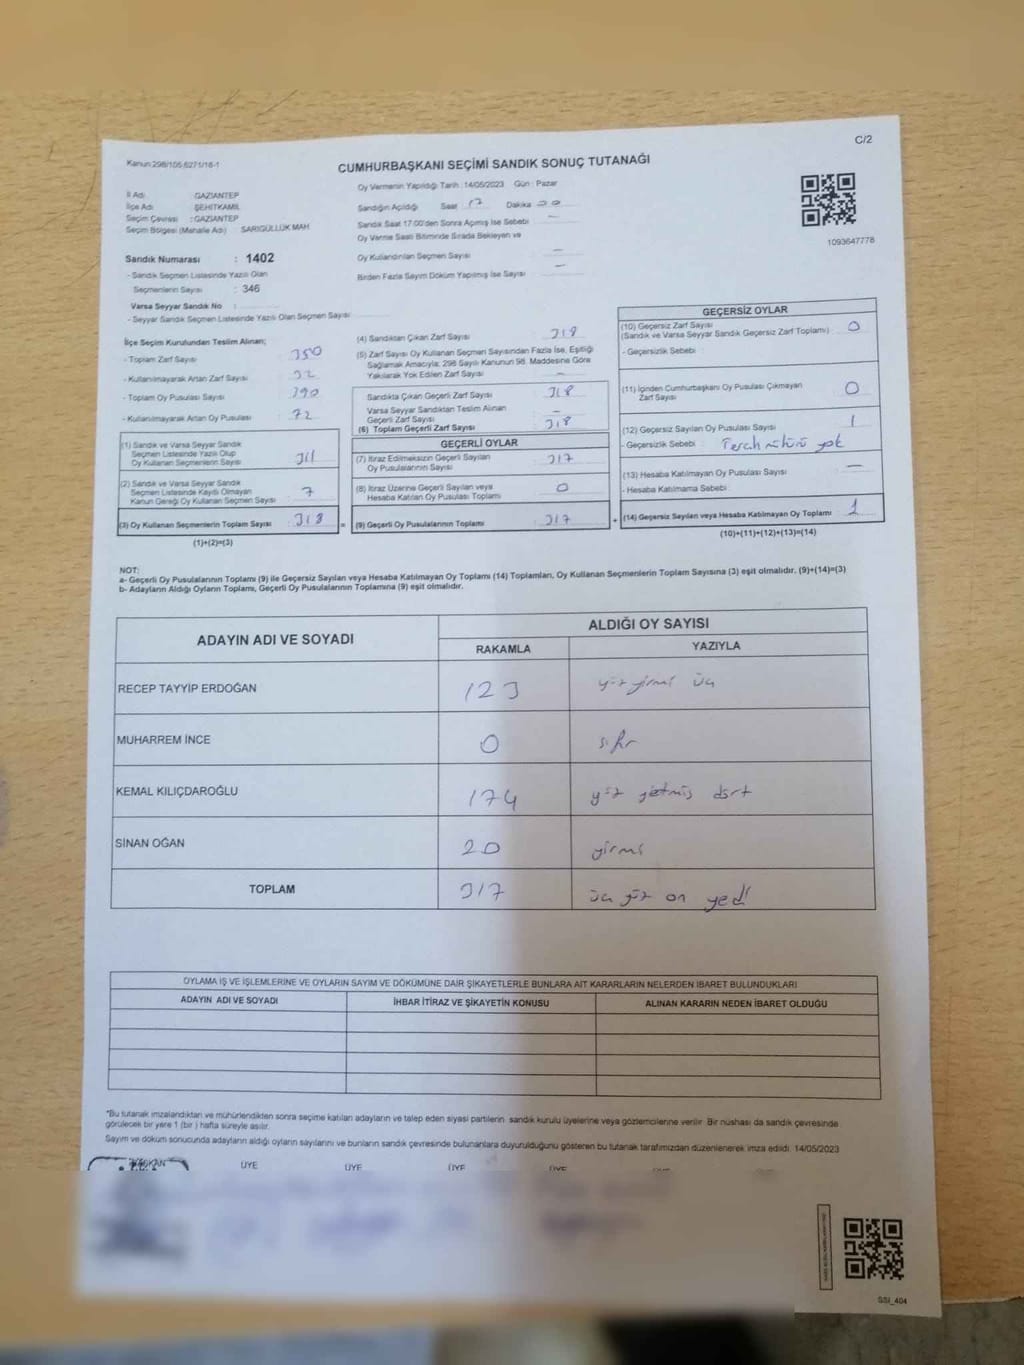 C/2
Kanun:298/105:6271/18-1
CUMHURBAŞKANI SEÇİMİ SANDIK SONUÇ TUTANAĞI
İl Adı : GAZİANTEP
İlçe Adı : ŞEHİTKAMİL
Seçim Çevresi : GAZİANTEP
Seçim Bölgesi (Mahalle Adı) SARIGÜLLÜK MAH
Sandık Numarası : 1402
- Sandık Seçmen Listesinde Yazılı Olan
Seçmenlerin Sayısı : 346
Varsa Seyyar Sandık No :
- Seyyar Sandık Seçmen Listesinde Yazılı Olan Seçmen Sayısı
Oy Vermenin Yapıldığı Tarih : 14/05/2023 Gün : Pazar
Sandığın Açıldığı Saat 17 Dakika 00
Sandık Saat 17:00'den Sonra Açılmış İse Sebebi —
Oy Verme Saati Bitiminde Sırada Bekleyen ve
Oy Kullandırılan Seçmen Sayısı —
Birden Fazla Sayım Döküm Yapılmış İse Sayısı —
1093647778
İlçe Seçim Kurulundan Teslim Alınan;
- Toplam Zarf Sayısı : 350
- Kullanılmayarak Artan Zarf Sayısı : 32
- Toplam Oy Pusulası Sayısı : 390
- Kullanılmayarak Artan Oy Pusulası : 72
(1) Sandık ve Varsa Seyyar Sandık
Seçmen Listesinde Yazılı Olup
Oy Kullanan Seçmenlerin Sayısı : 311
(2) Sandık ve Varsa Seyyar Sandık
Seçmen Listesinde Kayıtlı Olmayan
Kanun Gereği Oy Kullanan Seçmen Sayısı : 7
(3) Oy Kullanan Seçmenlerin Toplam Sayısı : 318 =
(1)+(2)=(3)
(4) Sandıktan Çıkan Zarf Sayısı : 318
(5) Zarf Sayısı Oy Kullanan Seçmen Sayısından Fazla İse, Eşitliği
Sağlamak Amacıyla; 298 Sayılı Kanunun 98. Maddesine Göre
Yakılarak Yok Edilen Zarf Sayısı : —
Sandıkta Çıkan Geçerli Zarf Sayısı : 318
Varsa Seyyar Sandıktan Teslim Alınan
Geçerli Zarf Sayısı : —
(6) Toplam Geçerli Zarf Sayısı : 318
GEÇERLİ OYLAR
(7) İtiraz Edilmeksizin Geçerli Sayılan
Oy Pusulalarının Sayısı : 317
(8) İtiraz Üzerine Geçerli Sayılan veya
Hesaba Katılan Oy Pusulası Toplamı : 0
(9) Geçerli Oy Pusulalarının Toplamı : 317 +
GEÇERSİZ OYLAR
(10) Geçersiz Zarf Sayısı
(Sandık ve Varsa Seyyar Sandık Geçersiz Zarf Toplamı) : 0
- Geçersizlik Sebebi :
(11) İçinden Cumhurbaşkanı Oy Pusulası Çıkmayan
Zarf Sayısı : 0
(12) Geçersiz Sayılan Oy Pusulası Sayısı : 1
- Geçersizlik Sebebi : Tercih mührü yok
(13) Hesaba Katılmayan Oy Pusulası Sayısı : —
- Hesaba Katılmama Sebebi :
(14) Geçersiz Sayılan veya Hesaba Katılmayan Oy Toplamı : 1
(10)+(11)+(12)+(13)=(14)
NOT:
a- Geçerli Oy Pusulalarının Toplamı (9) ile Geçersiz Sayılan veya Hesaba Katılmayan Oy Toplamı (14) Toplamları, Oy Kullanan Seçmenlerin Toplam Sayısına (3) eşit olmalıdır. (9)+(14)=(3)
b- Adayların Aldığı Oyların Toplamı, Geçerli Oy Pusulalarının Toplamına (9) eşit olmalıdır.
ADAYIN ADI VE SOYADI
ALDIĞI OY SAYISI
RAKAMLA YAZIYLA
RECEP TAYYİP ERDOĞAN 123 yüz yirmi üç
MUHARREM İNCE 0 sıfır
KEMAL KILIÇDAROĞLU 174 yüz yetmiş dört
SİNAN OĞAN 20 yirmi
TOPLAM 317 üç yüz on yedi
OYLAMA İŞ VE İŞLEMLERİNE VE OYLARIN SAYIM VE DÖKÜMÜNE DAİR ŞİKAYETLERLE BUNLARA AİT KARARLARIN NELERDEN İBARET BULUNDUKLARI
ADAYIN ADI VE SOYADI İHBAR İTİRAZ VE ŞİKAYETİN KONUSU ALINAN KARARIN NEDEN İBARET OLDUĞU
*Bu tutanak imzalandıktan ve mühürlendikten sonra seçime katılan adayların ve talep eden siyasi partilerin sandık kurulu üyelerine veya gözlemcilerine verilir. Bir nüshası da sandık çevresinde
görülecek bir yere 1 (bir ) hafta süreyle asılır.
Sayım ve döküm sonucunda adayların aldığı oyların sayılarını ve bunların sandık çevresinde bulunanlara duyurulduğunu gösteren bu tutanak tarafımızdan düzenlenerek imza edildi. 14/05/2023
BAŞKAN ÜYE ÜYE ÜYE ÜYE
SSI_404